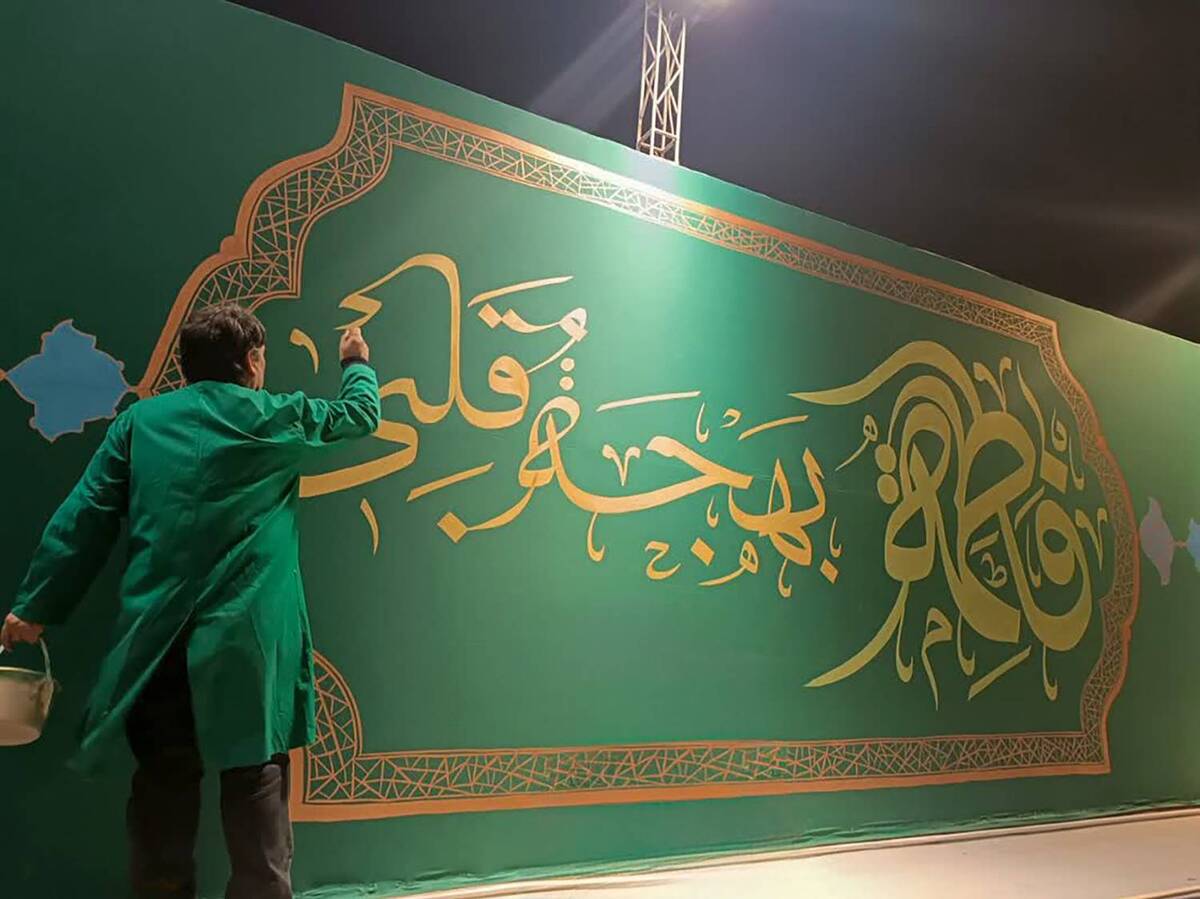 فاطِمَة بَهجَةُ قَلبي